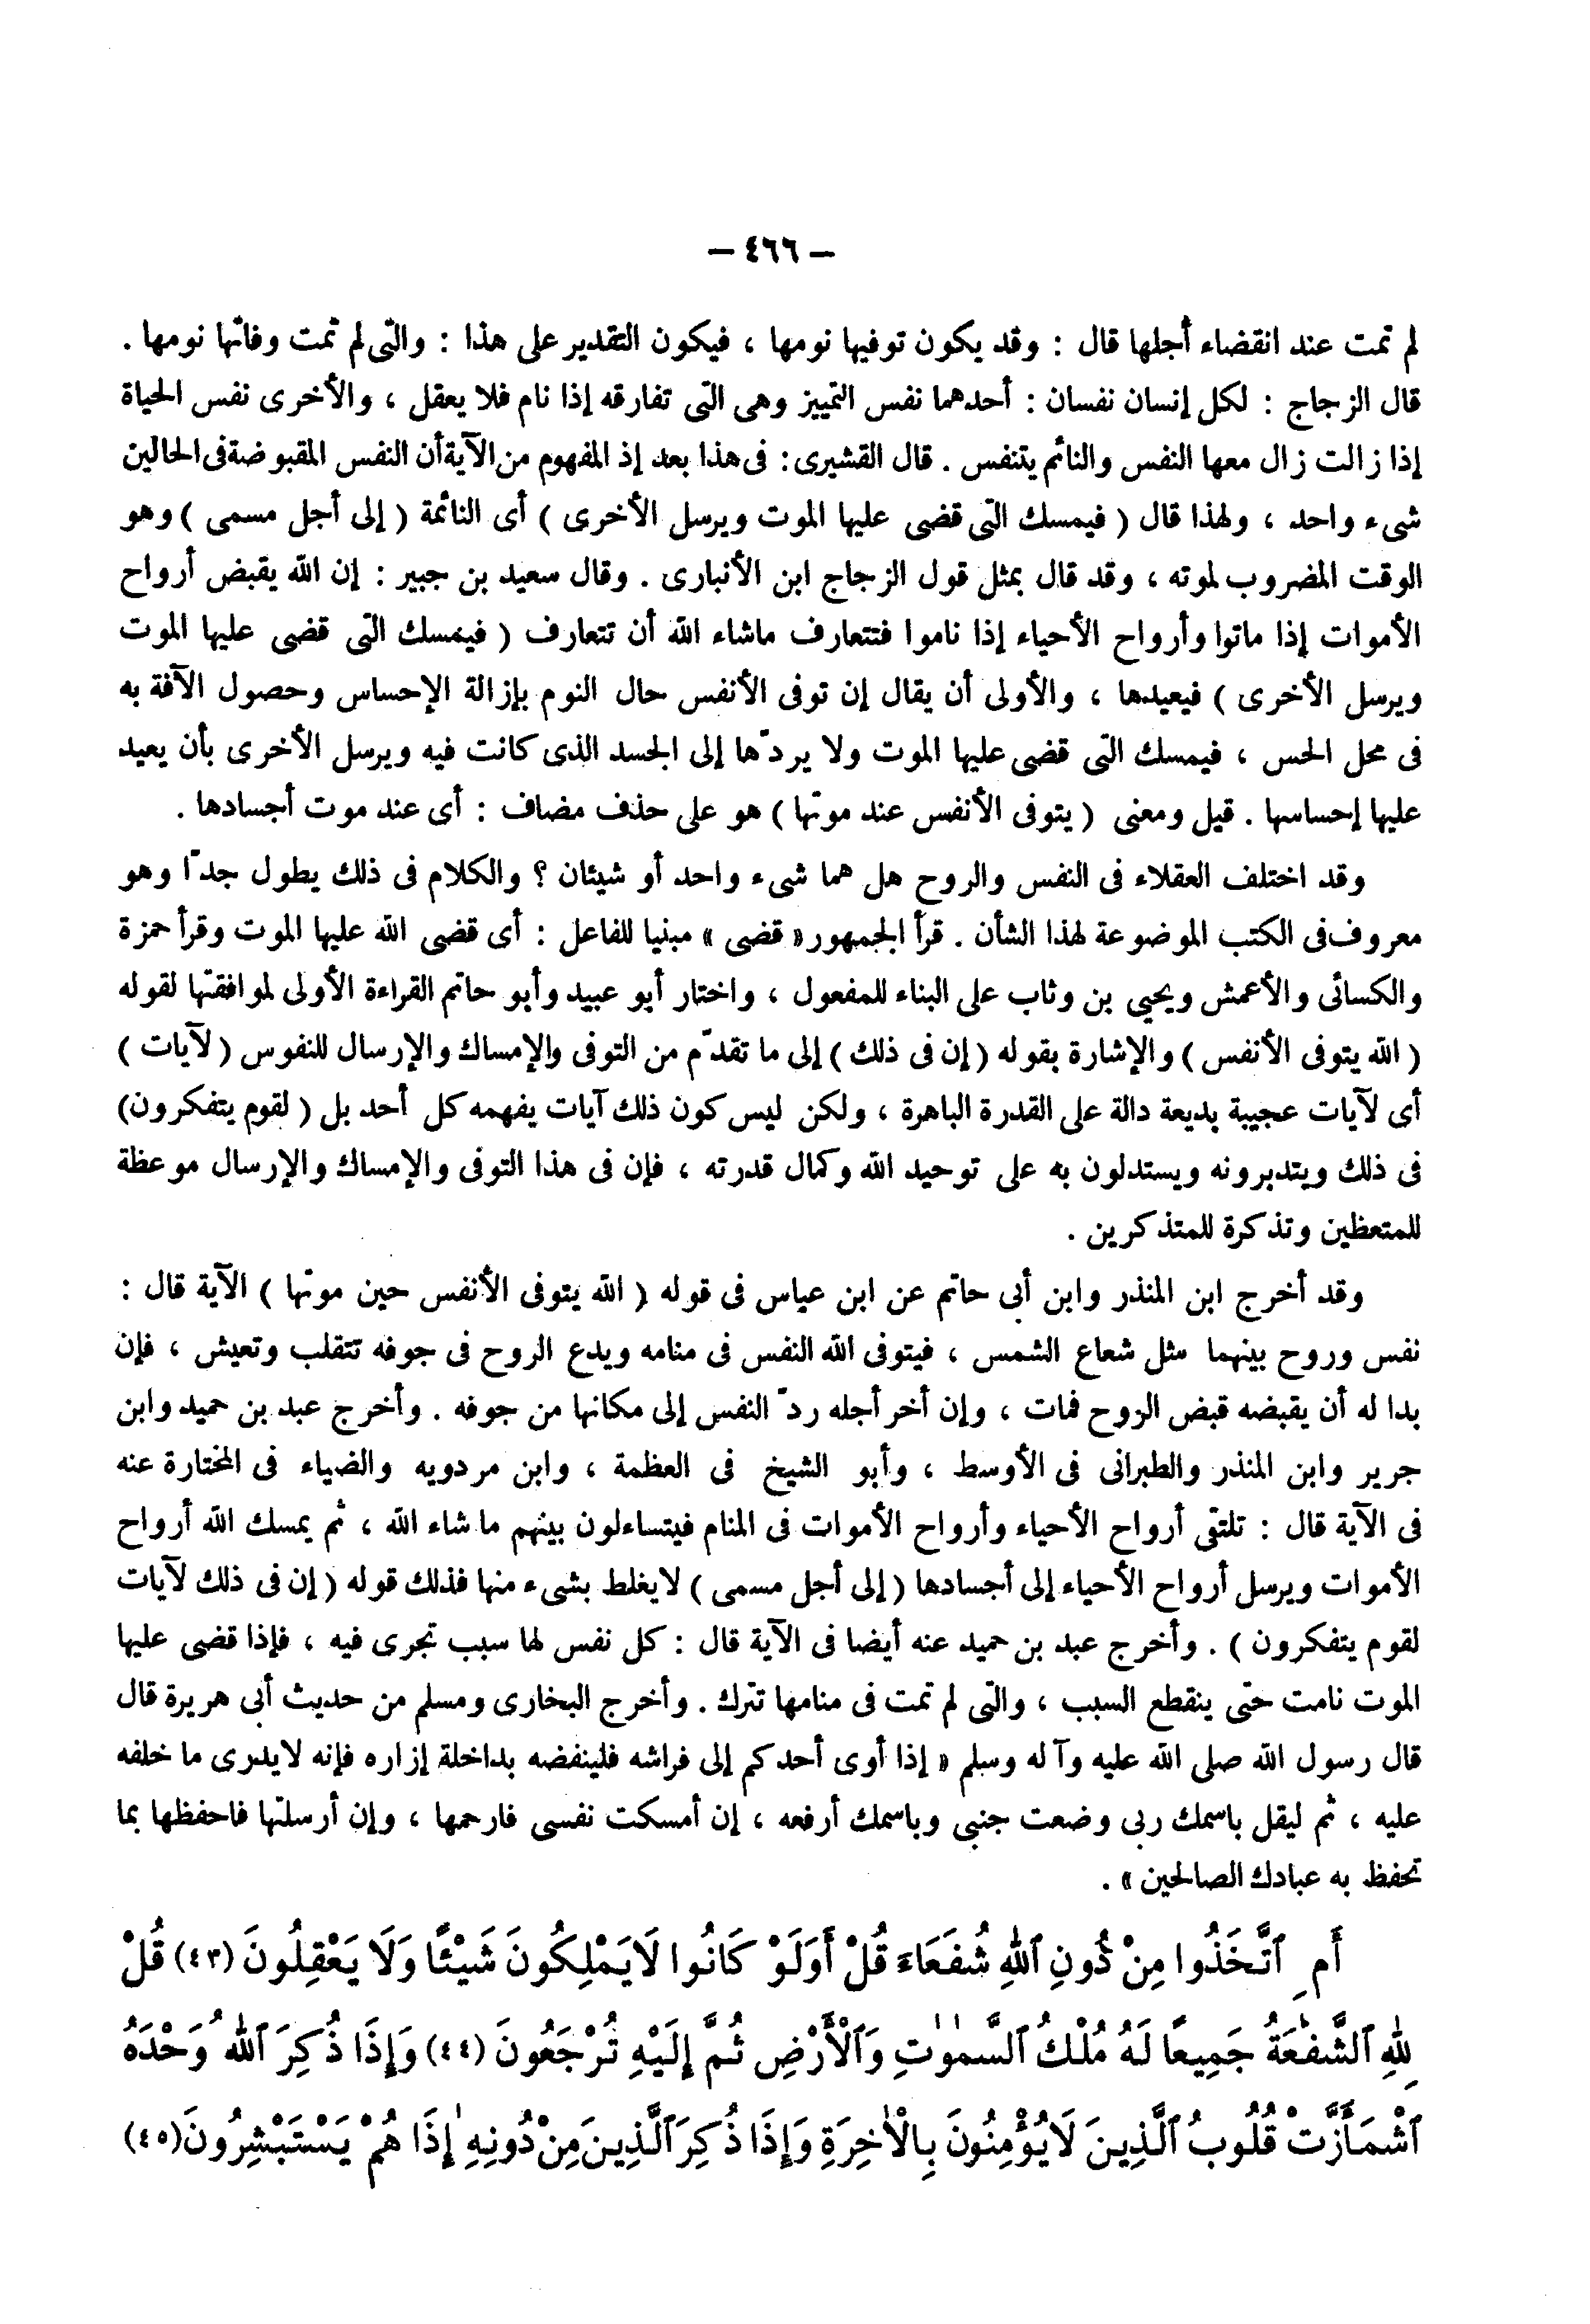 — ٤٦٦ —
لم تمت عند انقضاء أجلها قال : وقد يكون توفيها نومها ، فيكون التقدير على هذا : والتى لم تمت وفاتها نومها .
قال الزجاج : لكل إنسان نفسان : أحدهما نفس التمييز وهى التى تفارقه إذا نام فلا يعقل ، والأخرى نفس الحياة
إذا زالت زال معها النفس والنائم يتنفس . قال القشيرى : فى هذا بعد إذ المفهوم من الآية أن النفس المقبوضة فى الحالين
شىء واحد ، ولهذا قال ( فيمسك التى قضى عليها الموت ويرسل الأخرى ) أى النائمة ( إلى أجل مسمى ) وهو
الوقت المضروب لموته ، وقد قال بمثل قول الزجاج ابن الأنبارى . وقال سعيد بن جبير : إن الله يقبض أرواح
الأموات إذا ماتوا وأرواح الأحياء إذا ناموا فتتعارف ماشاء الله أن تتعارف ( فيمسك التى قضى عليها الموت
ويرسل الأخرى ) فيعيدها ، والأولى أن يقال إن توفى الأنفس حال النوم بإزالة الإحساس وحصول الآفة به
فى محل الحس ، فيمسك التى قضى عليها الموت ولا يردّها إلى الجسد الذى كانت فيه ويرسل الأخرى بأن يعيد
عليها إحساسها . قيل ومعنى ( يتوفى الأنفس عند موتها ) هو على حذف مضاف : أى عند موت أجسادها .
وقد اختلف العقلاء فى النفس والروح هل هما شىء واحد أو شيئان ؟ والكلام فى ذلك يطول جدّا وهو
معروف فى الكتب الموضوعة لهذا الشأن . قرأ الجمهور « قضى » مبنيا للفاعل : أى قضى الله عليها الموت وقرأ حمزة
والكسائى والأعمش ويحيى بن وثاب على البناء للمفعول ، واختار أبو عبيد وأبو حاتم القراءة الأولى لموافقتها لقوله
( الله يتوفى الأنفس ) والإشارة بقوله ( إن فى ذلك ) إلى ما تقدّم من التوفى والإمساك والإرسال للنفوس ( لآيات )
أى لآيات عجيبة بديعة دالة على القدرة الباهرة ، ولكن ليس كون ذلك آيات يفهمه كل أحد بل ( لقوم يتفكرون )
فى ذلك ويتدبرونه ويستدلون به على توحيد الله وكمال قدرته ، فإن فى هذا التوفى والإمساك والإرسال موعظة
للمتعظين وتذكرة للمتذكرين .
وقد أخرج ابن المنذر وابن أبى حاتم عن ابن عباس فى قوله ( الله يتوفى الأنفس حين موتها ) الآية قال :
نفس وروح بينهما مثل شعاع الشمس ، فيتوفى الله النفس فى منامه ويدع الروح فى جوفه تتقلب وتعيش ، فإن
بدا له أن يقبضه قبض الروح فمات ، وإن أخر أجله ردّ النفس إلى مكانها من جوفه . وأخرج عبد بن حميد وابن
جرير وابن المنذر والطبرانى فى الأوسط ، وأبو الشيخ فى العظمة ، وابن مردويه والضياء فى المختارة عنه
فى الآية قال : تلتقى أرواح الأحياء وأرواح الأموات فى المنام فيتساءلون بينهم ما شاء الله ، ثم يمسك الله أرواح
الأموات ويرسل أرواح الأحياء إلى أجسادها ( إلى أجل مسمى ) لا يغلط بشىء منها فذلك قوله ( إن فى ذلك لآيات
لقوم يتفكرون ) . وأخرج عبد بن حميد عنه أيضا فى الآية قال : كل نفس لها سبب تجرى فيه ، فإذا قضى عليها
الموت نامت حتى ينقطع السبب ، والتى لم تمت فى منامها تترك . وأخرج البخارى ومسلم من حديث أبى هريرة قال
قال رسول الله صلى الله عليه وآله وسلم « إذا أوى أحدكم إلى فراشه فلينفضه بداخلة إزاره فإنه لايدرى ما خلفه
عليه ، ثم ليقل باسمك ربى وضعت جنبى وباسمك أرفعه ، إن أمسكت نفسى فارحمها ، وإن أرسلتها فاحفظها بما
تحفظ به عبادك الصالحين » .
أَمِ ٱتَّخَذُوا مِنْ دُونِ ٱللهِ شُفَعَاءَ قُلْ أَوَلَوْ كَانُوا لَايَمْلِكُونَ شَيْئًا وَلَا يَعْقِلُونَ (٤٣) قُلْ
لِلهِ ٱلشَّفٰعَةُ جَمِيعًا لَهُ مُلْكُ ٱلسَّمٰوٰتِ وَٱلْأَرْضِ ثُمَّ إِلَيْهِ تُرْجَعُونَ (٤٤) وَإِذَا ذُكِرَ ٱللهُ وَحْدَهُ
ٱشْمَأَزَّتْ قُلُوبُ ٱلَّذِينَ لَايُؤْمِنُونَ بِالْاٰخِرَةِ وَإِذَا ذُكِرَ ٱلَّذِينَ مِنْ دُونِهِ إِذَا هُمْ يَسْتَبْشِرُونَ (٤٥)